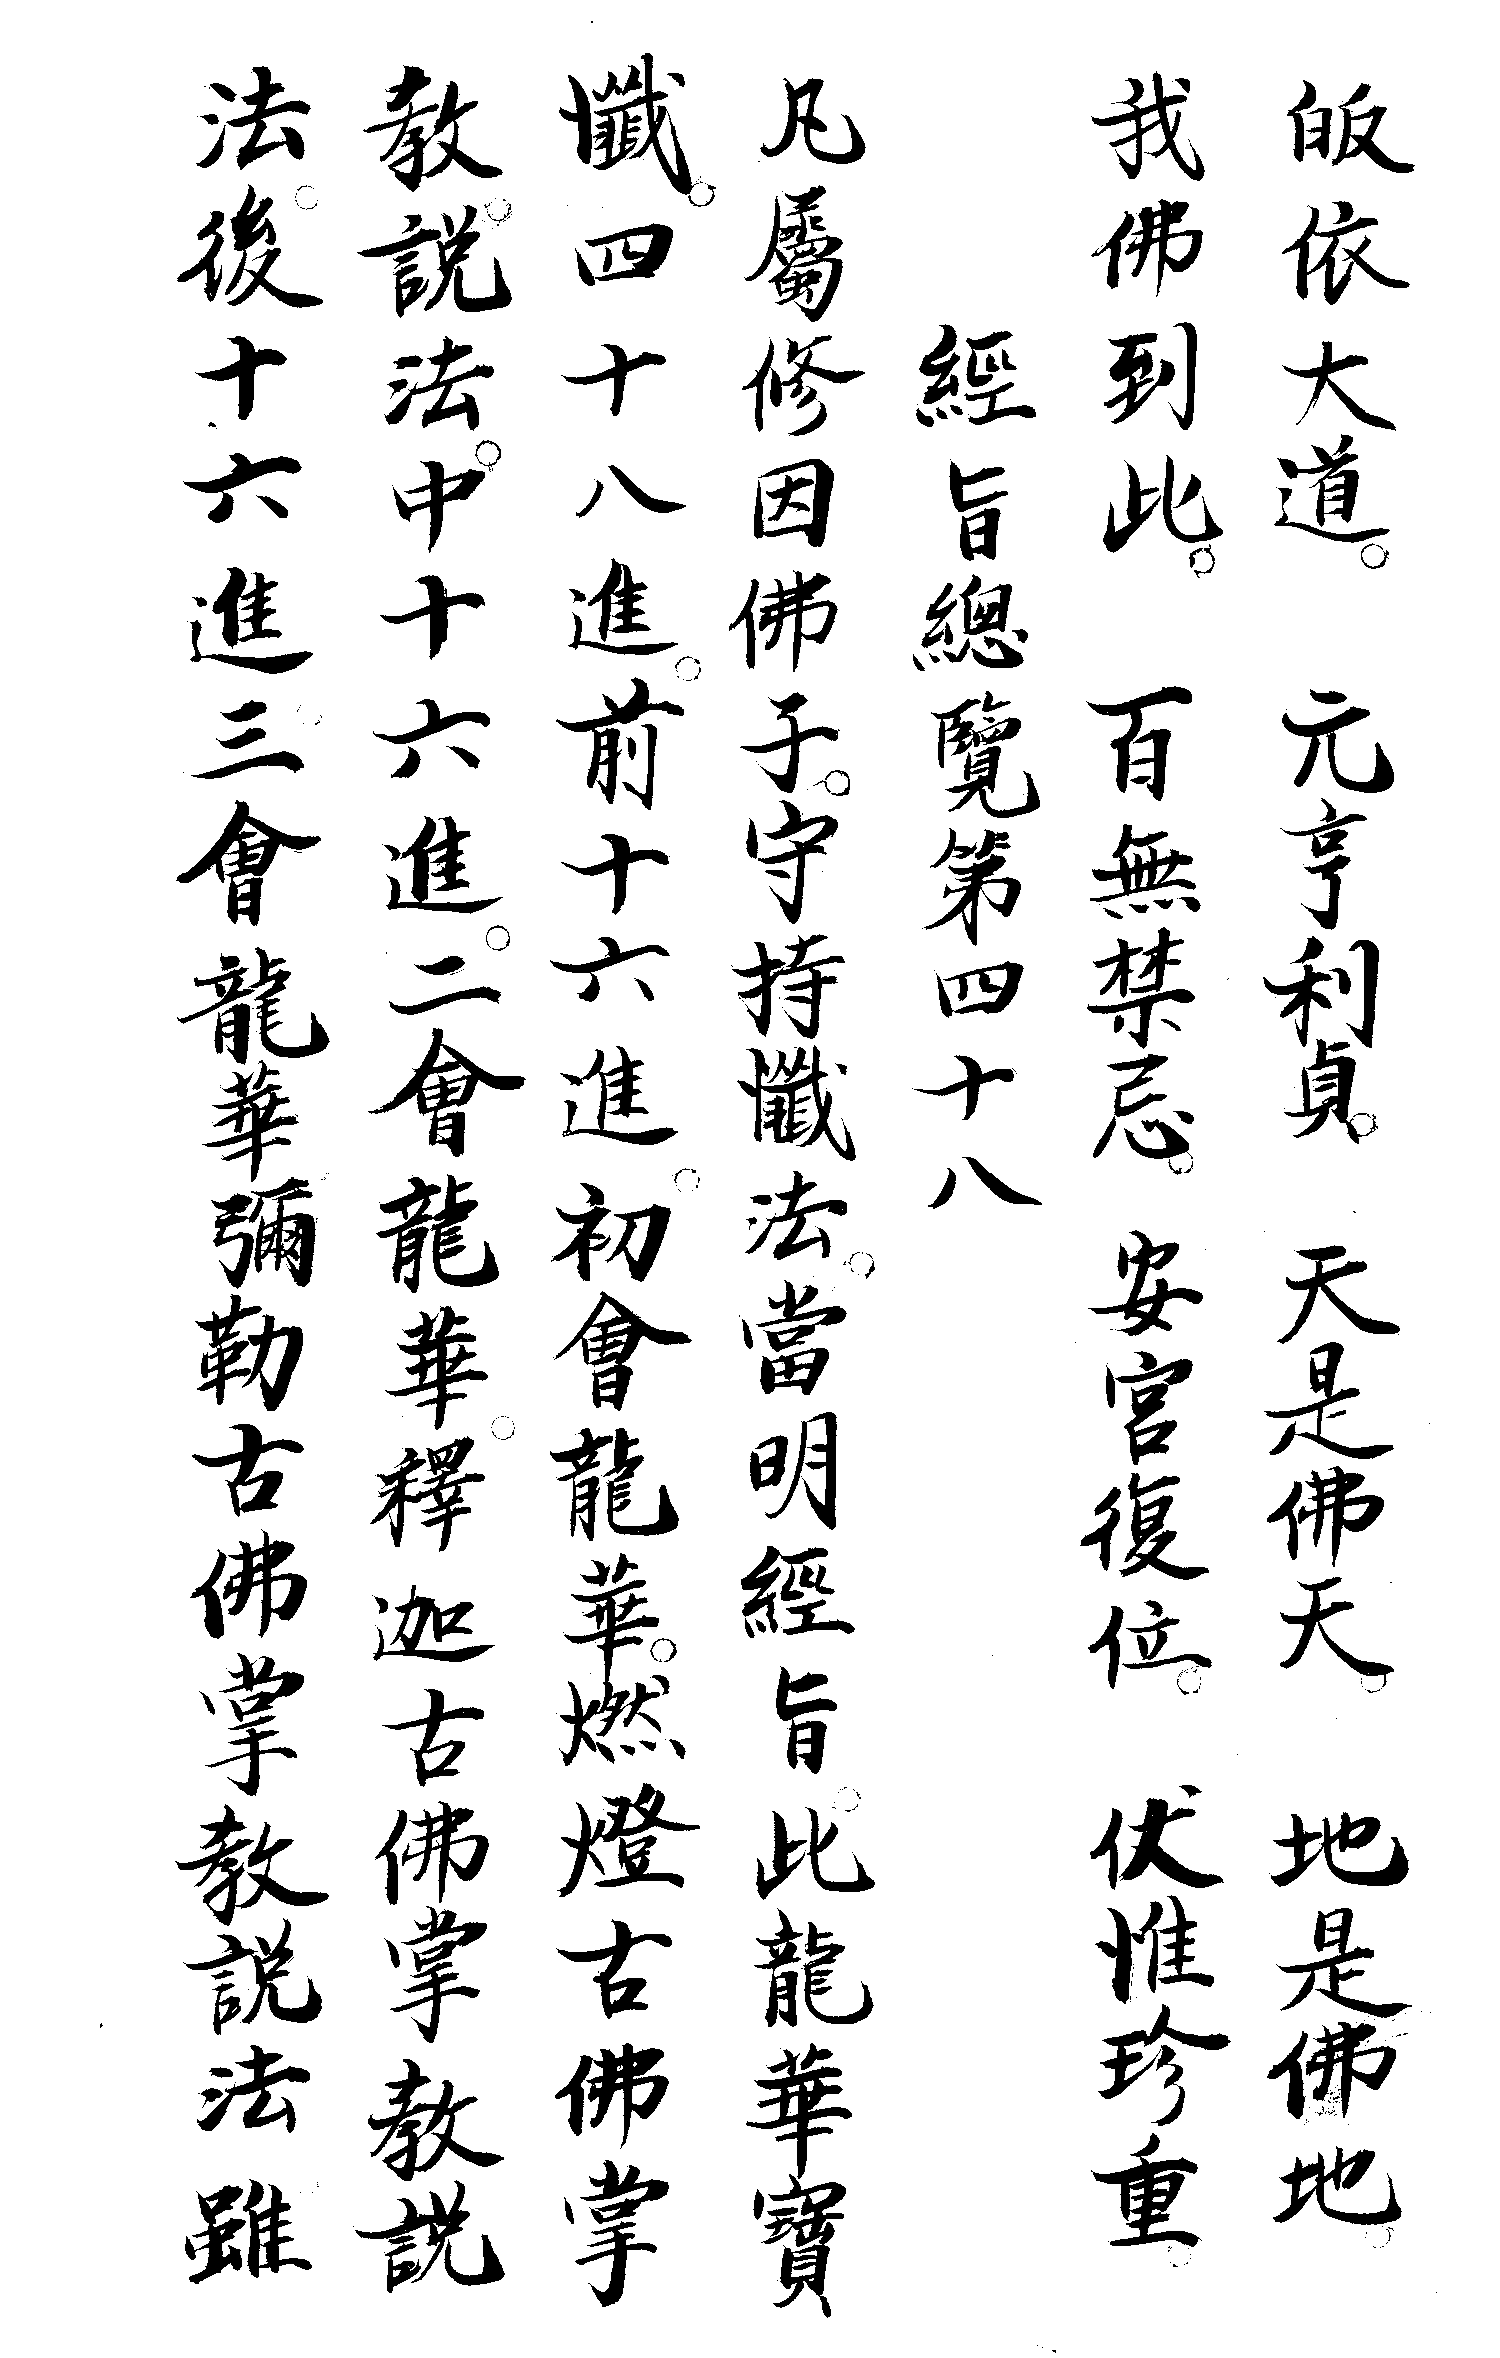 皈依大道。　元亨利貞。　天是佛天。　地是佛地。
我佛到此。　百無禁忌。　安宮復位。　伏惟珍重。
經旨總覽第四十八
凡屬修因佛子。守持懺法。當明經旨。此龍華寶
懺。四十八進。前十六進。初會龍華。燃燈古佛掌
教。説法。中十六進。二會龍華。釋迦古佛掌教説
法。後十六進。三會龍華彌勒古佛掌教説法雖